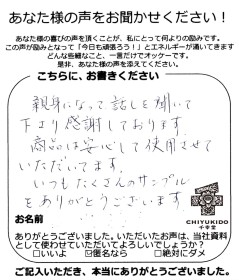 あなた様の声をお聞かせください！
あなた様の喜びの声を頂くことが、私にとって何よりの励みです。
この声が励みとなって「今日も頑張ろう！」とエネルギーが湧いてきます
どんな些細なこと、一言だけでオッケーです。
是非、あなた様の声を添えてください。
こちらに、お書きください
親身になって話しを聞いて
下さり感謝しております。
商品は安心して使用させて
いただいてます。
いつもたくさんのサンプル
をありがとうございます
CHIYUKIDO
千幸堂
お名前
ありがとうございました。いただいたお声は、当社資料
として使わせていただいてよろしいでしょうか？
□いいよ ☑匿名なら □絶対にダメ
ご記入いただき、本当にありがとうございました。